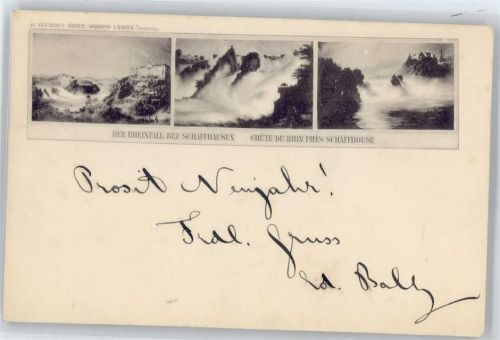 DER RHEINFALL BEI SCHAFFHAUSEN CHÛTE DU RHIN PRÈS SCHAFFHOUSE
Prosit Neujahr!
Frdl. Gruss
Ed. Bally